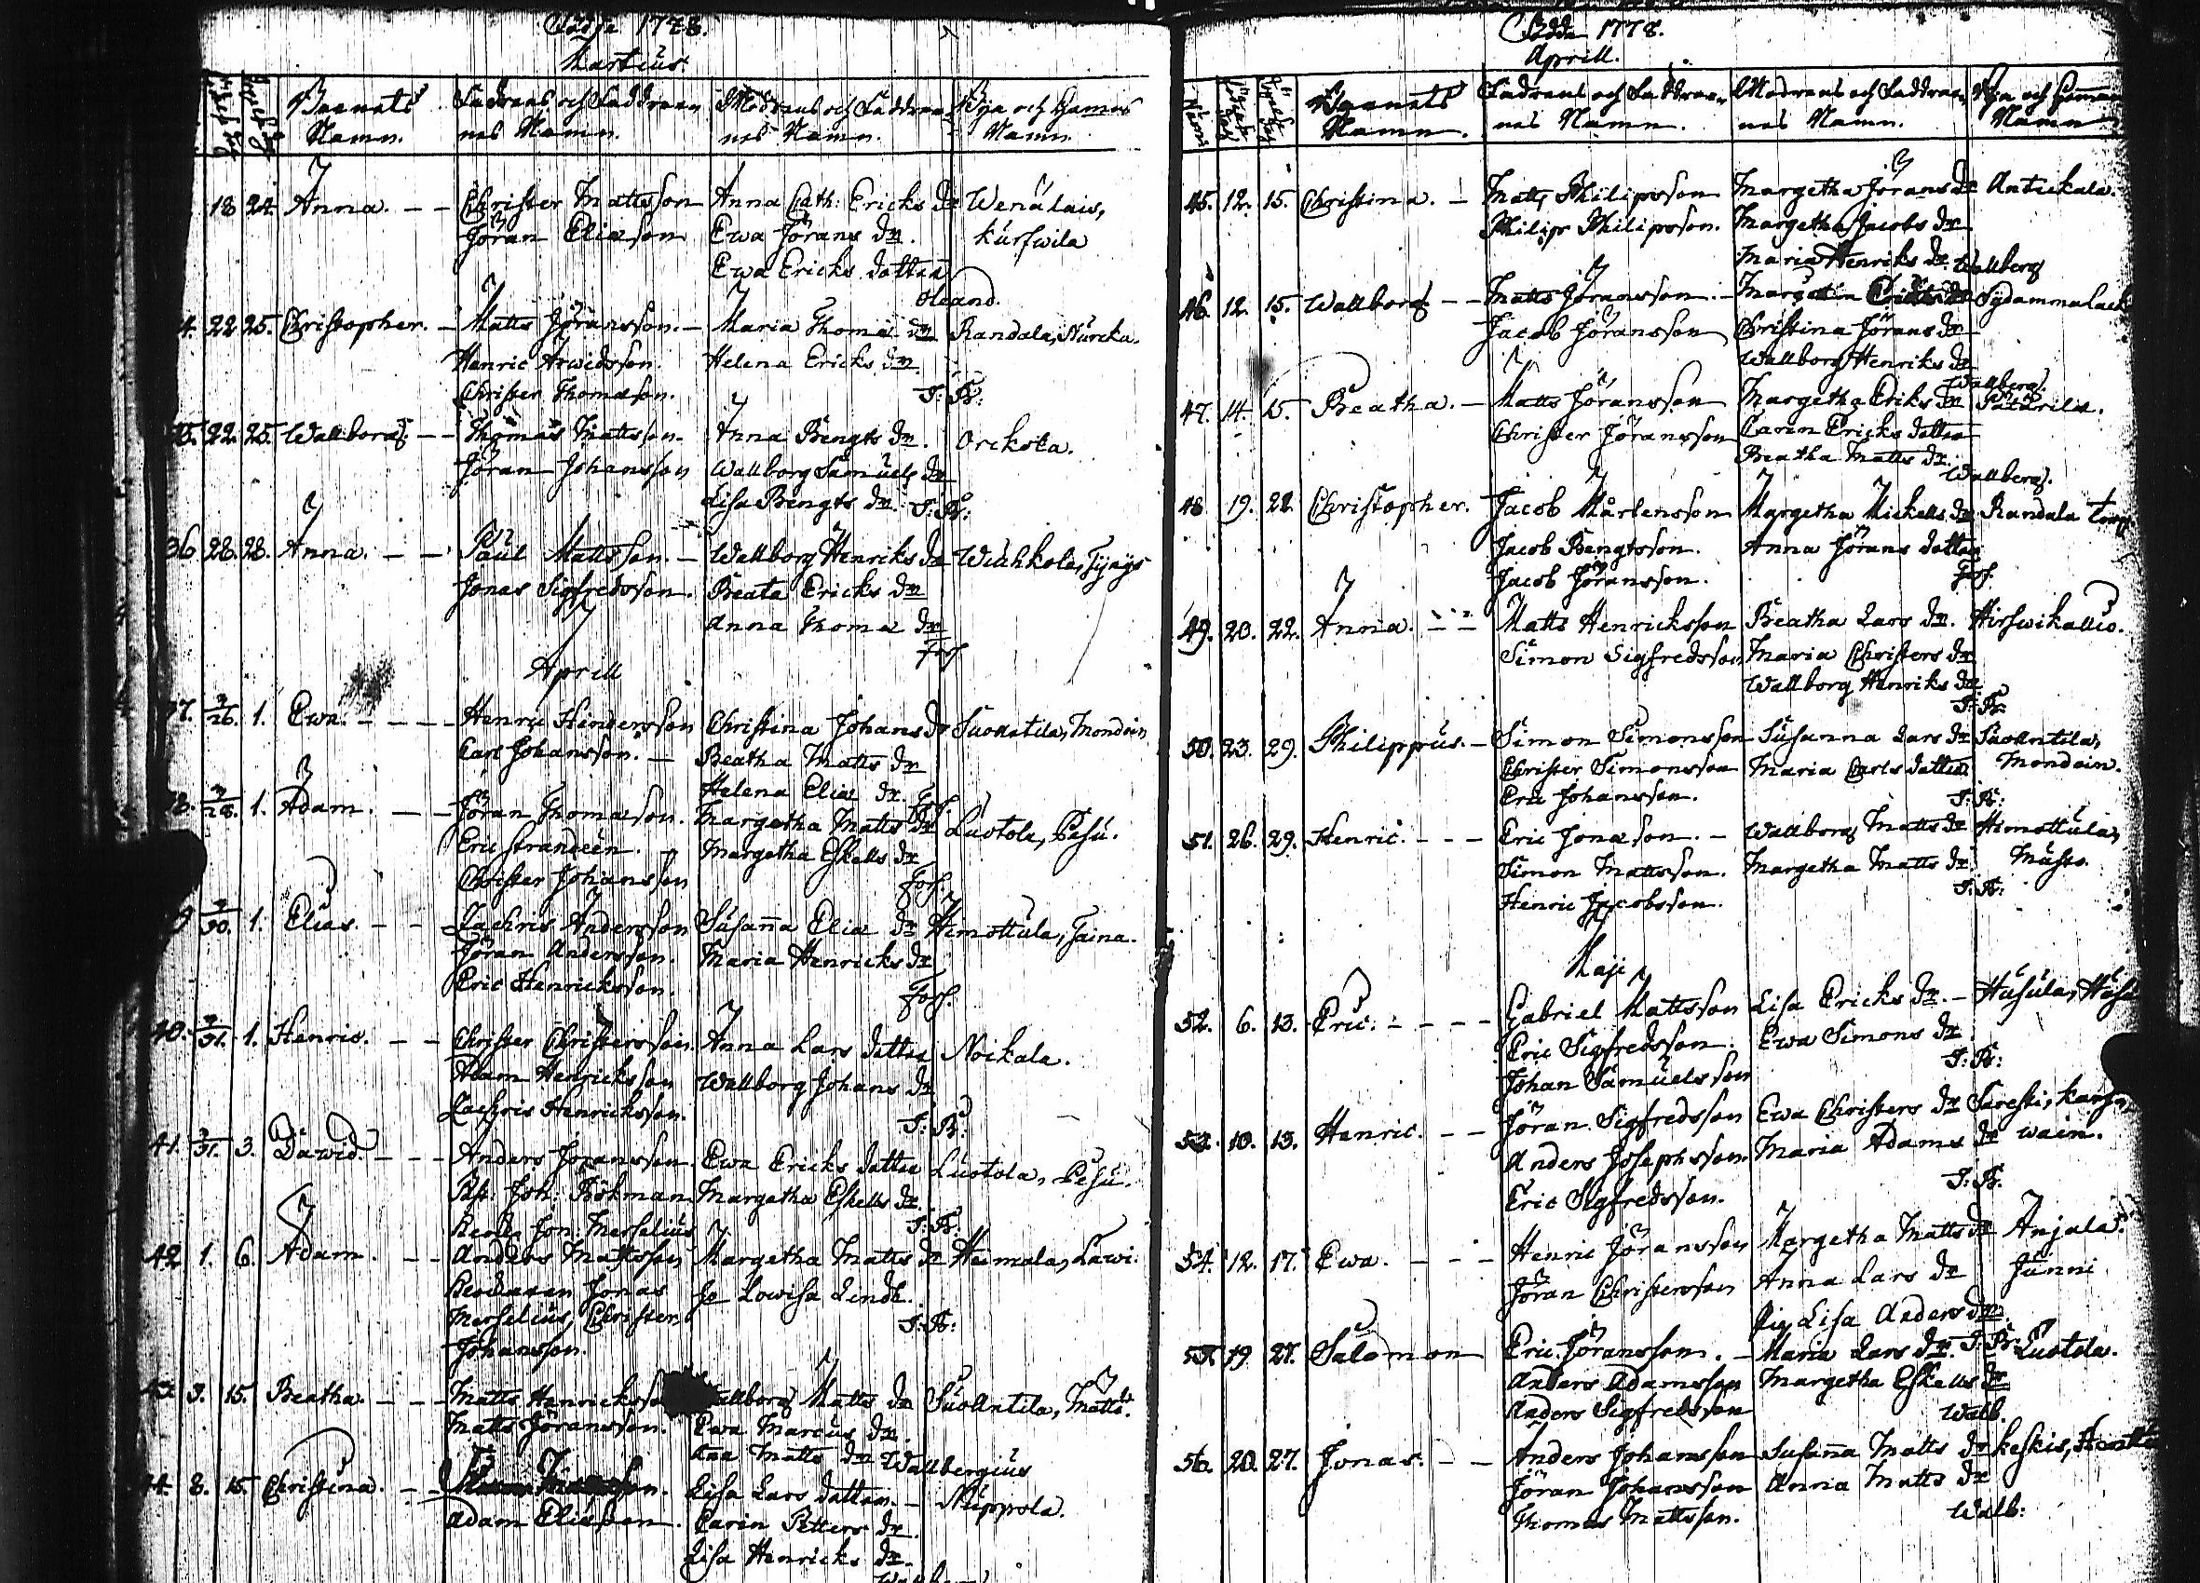 Födde 1778.
Martius.
Barnets Fadrens och Faddrar- Modrens och Faddrar- Bya och Hemans
Namn. nes Namn. nes Namn. Namn.
18 24. Anna. - - Christer Mattsson Anna Cath: Ericks dr Wenälais,
Jöran Eliæson Ewa Jörans dr. Kurswila
Ewa Ericks dotter
22 25. Christopher. - Matts Jöransson. - Maria Thomæ dr Randala, Nurcka.
Henric Arwidsson. Helena Ericks dr.
Christer Thomæson. J: B:
35. 22. 25. Wallborg. - - Thomas Mattsson. Anna Bengts dr. Orckola.
Jöran Johansson Wallborg Samuels dr
Lisa Bengts dr. J: B:
36 28. 28. Anna. - - Paul Mattsson. - Wallborg Henriks dr Wiahkola,
Jonas Sigfredsson. Beata Ericks dr
Anna Thomæ dr
Fors
Aprill
37. 3/26. 1. Ewa. - - - Henric Hindersson Christina Johans dr Suoantila, Mondoin
Carl Johansson. - Beatha Matts dr
Helena Eliæ dr.
38. 3/28. 1. Adam. - - Jöran Thomæson. Margetha Matts dr Luotola, Pesu.
Eric Strandeen. - Margetha Eskells dr
Christer Johansson Fors.
3/30. 1. Elias. - - Zachris Andersson Susaña Eliæ dr Himottula, Taina.
Jöran Andersson. Maria Henricks dr
Eric Henricksson. Fors.
40. 3/31. 1. Henric. - - Christer Christersson. Anna Lars dotter Noikala.
Adam Henricksson Wallborg Johans dr
Zachris Henricksson. J: B:
41. 3/31. 3. Dawid. - - - Anders Jöransson. Ewa Ericks dotter Luotola, Pesu.
Joh: Bökman Margetha Eskells dr
Jon: Merselius J: B:
42 1. 6. Adam. - - Anders Mattsson Margetha Matts dr Heimala, Lawi.
Jonas Lowisa Lindb.
Merselius, Christer J: B:
Johansson.
43 3. 15. Beatha. - - - Matts Henricksson Wallborg Matts dr Suoantila, Matts.
Matts Jöransson. Ewa Marcus dr.
Matts dr Wallbergius
8. 15. Christina. - - Lisa Lars dotter. - Nuppola.
Adam Eliæson. Carin Petters dr.
Lisa Henricks dr.
Födde 1778.
Aprill.
Barnets Fadrens och Faddrar- Modrens och Faddrar- Bya och Heman
Namn. nes Namn. nes Namn. Namn
45. 12. 15. Christina. - Matts Philipsson Margetha Jörans dr Antickala.
Philip Philipsson. Margetha Jacobs dr
Maria Henriks dr. Wallberg
46. 12. 15. Wallborg - - Matts Jöransson. - Margetha Ericks dr Sydammalack
Jacob Jöransson Christina Jörans dr
Wallborg Henriks dr
Wallberg.
47. 14. 15. Beatha. - Matts Jöransson Margetha Eriks dr
Christer Jöransson Carin Ericks dotter
Beatha Matts dr.
Wallberg.
48 19. 22 Christopher. Jacob Mårtensson Margetha Mickells dr Randala Torp
Jacob Bengtsson. Anna Jörans dotter
Jacob Jöransson. Fors.
49. 20. 22. Anna. - - Matts Henricksson Beatha Lars dr. Hirswikallio.
Simon Sigfredsson Maria Christers dr
Wallborg Henriks dr
J: B:
50. 23. 29. Philippus. - Simon Simonsson Susanna Lars dr Suoantila,
Christer Simonsson Maria Carls dotter Mondoin.
Eric Johansson. J: B:
51. 26. 29. Henric. - - - Eric Jonæson. - Wallborg Matts dr Himottula,
Simon Mattsson. Margetha Matts dr. Musto.
Henric Jacobsson. J: B:
Maji
52. 6. 13. Eric. - - - - Gabriel Mattsson Lisa Ericks dr. - Husula,
Eric Sigfredsson. Ewa Simons dr
Johan Samuelsson J: B:
53. 10. 13. Henric. - - Jöran Sigfredsson Ewa Christers dr Saresti,
Anders Josephsson. Maria Adams dr wain.
Eric Sigfredsson. J: B:
54. 12. 17. Ewa. - - - Henric Jöransson Margetha Matts dr Anjala.
Jöran Christersson Anna Lars dr Junni
Pig Lisa Anders dr
55. 19 27. Salomon Eric Jöransson. - Maria Lars dr. J: B: Luotola.
Anders Adamsson Margetha Eskells dr
Anders Sigfredsson Wallb.
56. 20. 27. Jonas. - - Anders Johansson Susaña Matts dr Keskis,
Jöran Johansson Anna Matts dr
Thomas Mattsson. Wallb: